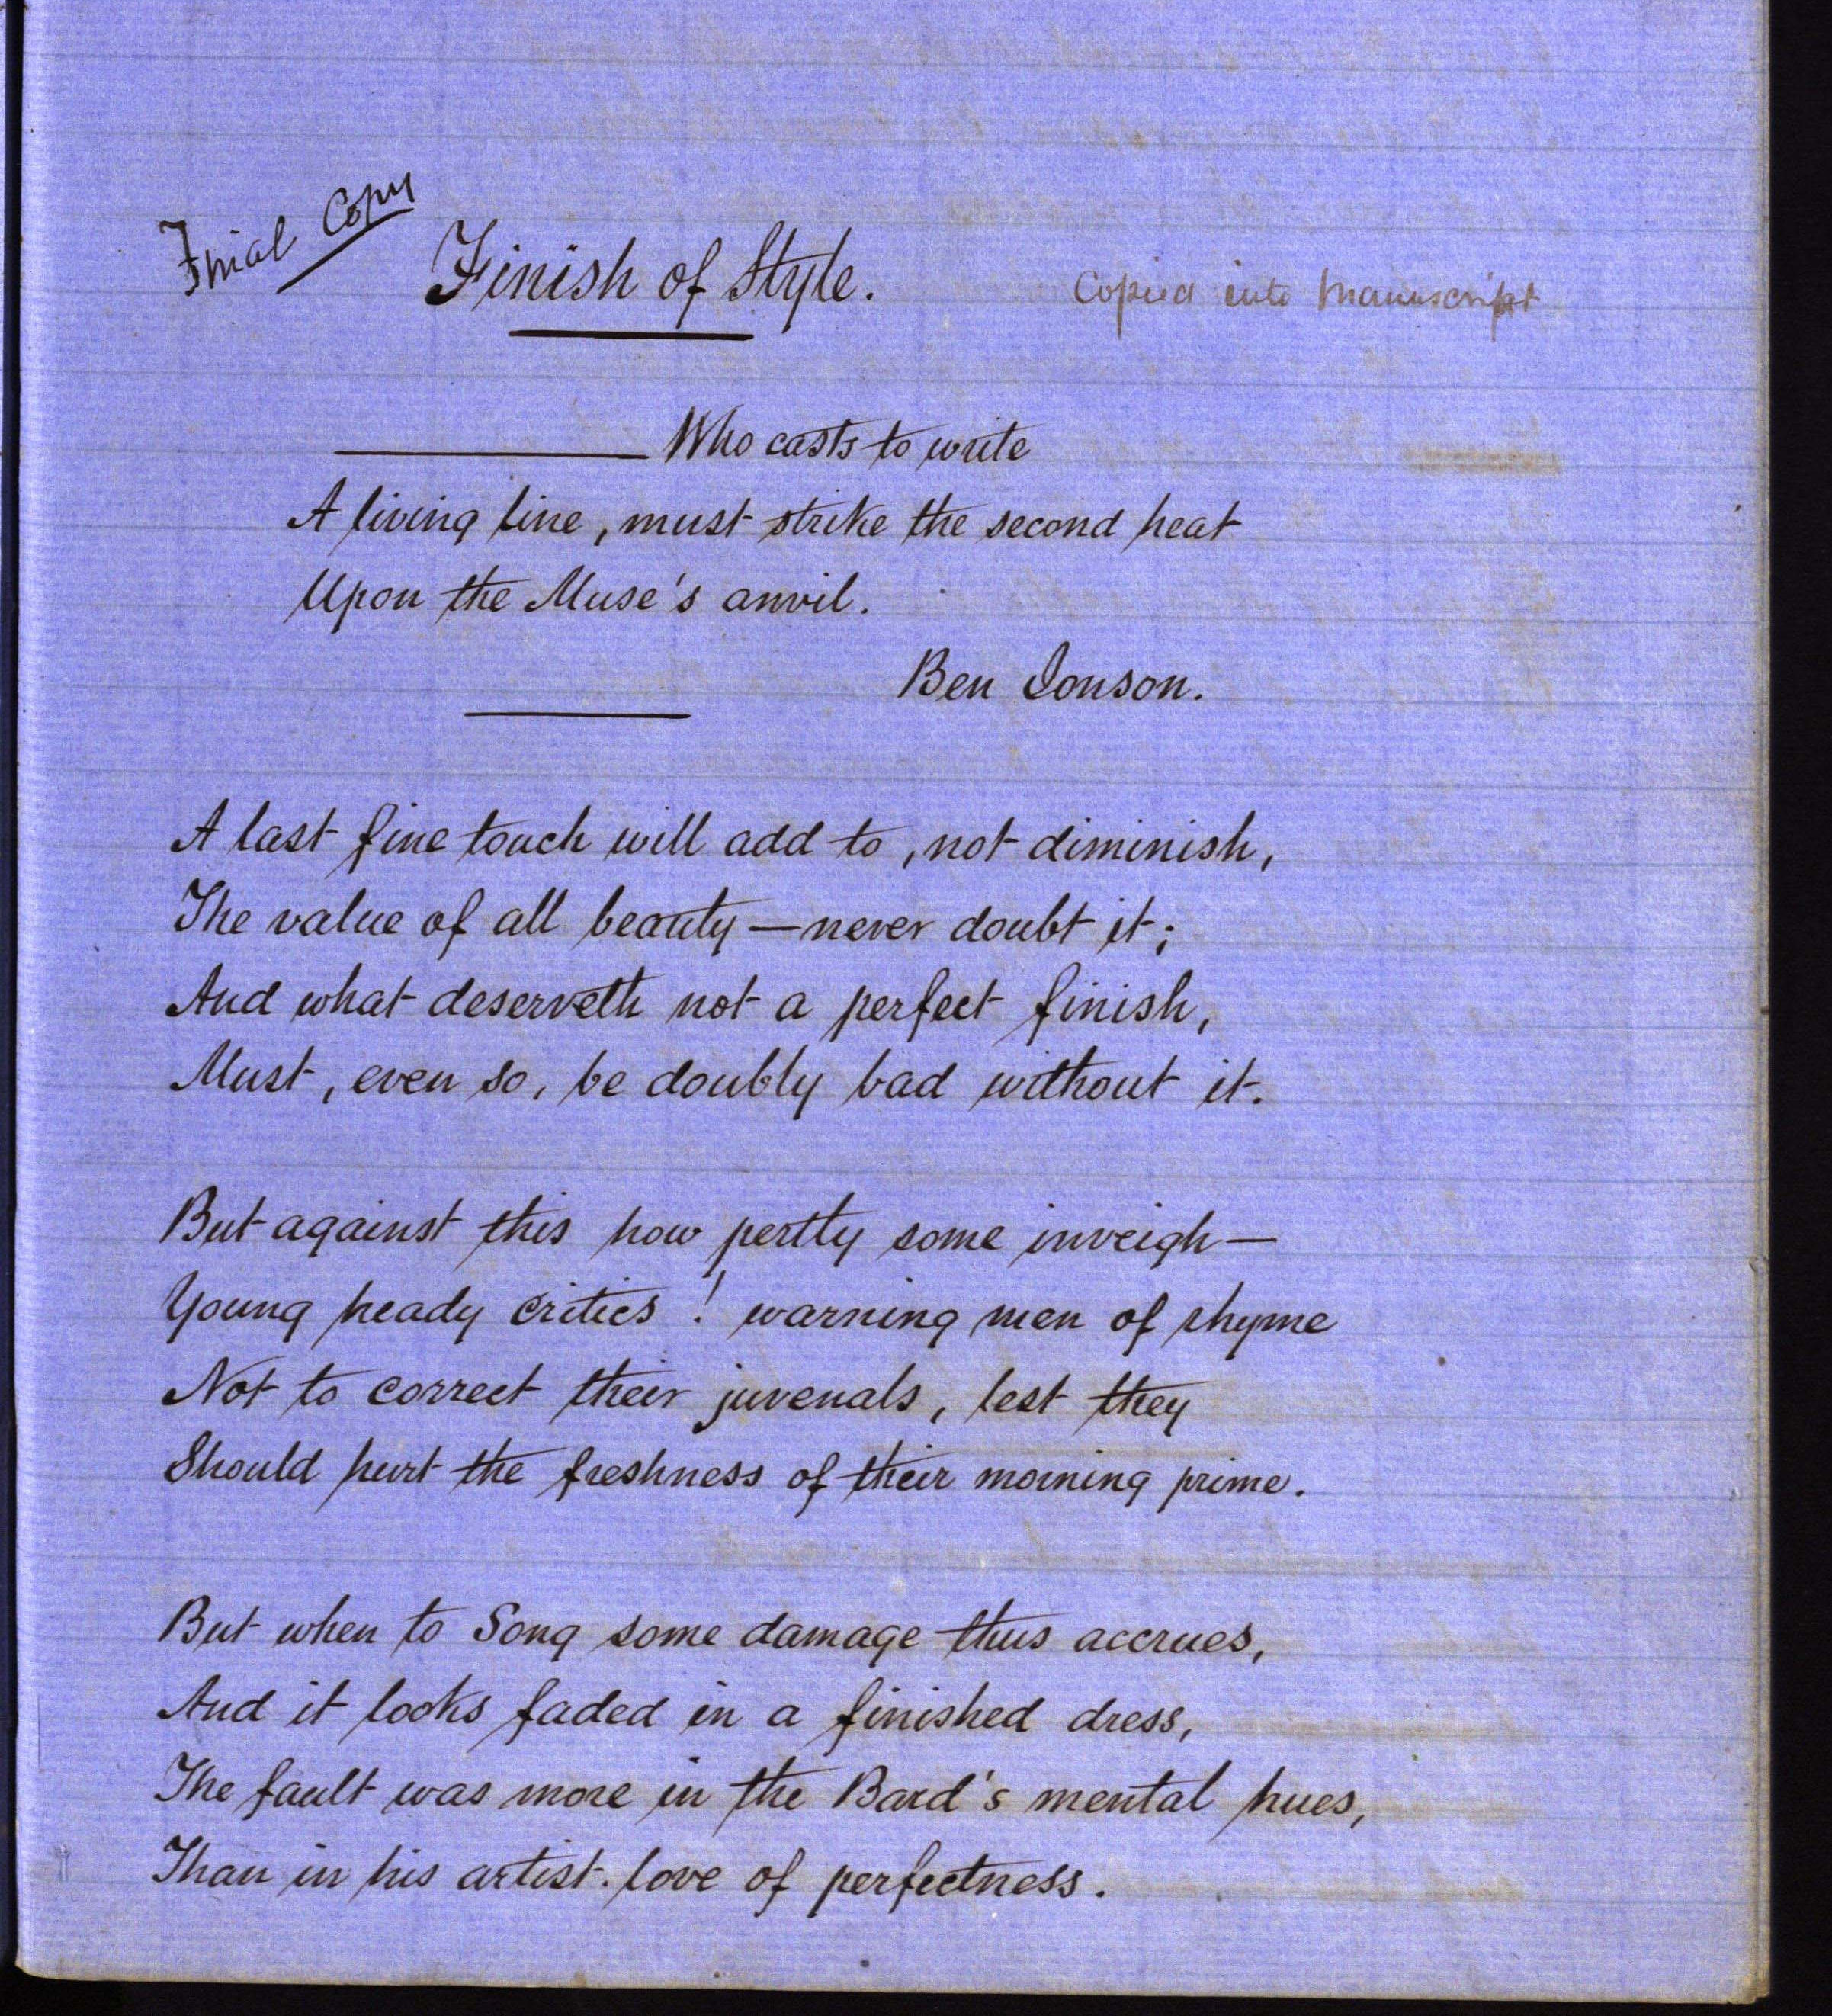 Final Copy
Finish of Style.
Copied into Manuscript
Who casts to write
A living line, must strike the second heat
Upon the Muse's anvil.
Ben Jonson.
A last fine touch will add to, not diminish,
The value of all beauty — never doubt it;
And what deserveth not a perfect finish,
Must, even so, be doubly bad without it.
But against this how pertly some inveigh —
Young heady critics! warning men of rhyme
Not to correct their juvenals, lest they
Should hurt the freshness of their morning prime.
But when to Song some damage thus accrues,
And it looks faded in a finished dress,
The fault was more in the Bard's mental hues,
Than in his artist-love of perfectness.